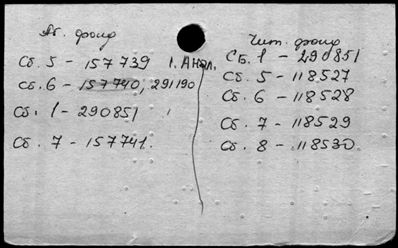 Аб. фонд
Сб. 5 - 157739 1. Анал.
Сб. 6 - 157740, 291190
Сб. 1 - 290851
Сб. 7 - 157741.
Чит. фонд
Сб. 1 - 290851
Сб. 5 - 118527
Сб. 6 - 118528
Сб. 7 - 118529
Сб. 8 - 118530